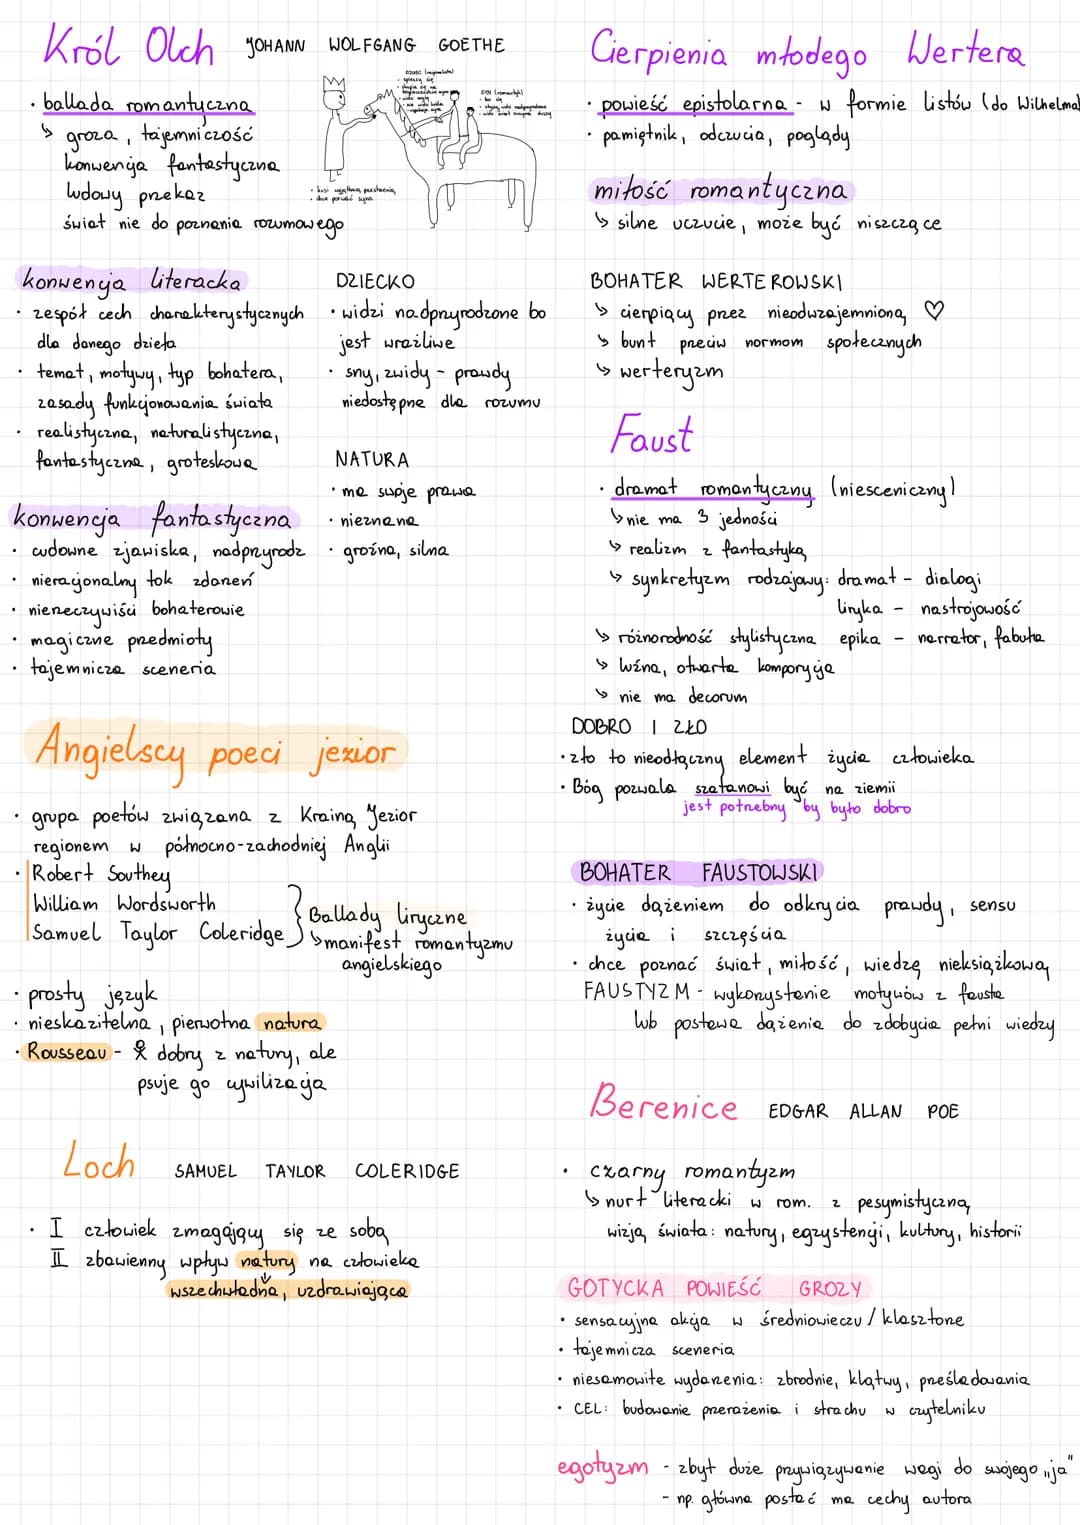 Król Olch JOHANN WOLFGANG GOETHE
• ballada romantyczna
↳ groza, tajemniczość
konwencja fantastyczna
ludowy przekaz
świat nie do poznania rozumowego
OJCIEC (racjonalista)
SYN (romantyk)
• boi się
• kusi
• chce porwać syna
konwencja literacka
• zespół cech charakterystycznych
dla danego dzieła
• temat, motywy, typ bohatera,
zasady funkcjonowania świata
• realistyczna, naturalistyczna,
fantastyczna, groteskowa
konwencja fantastyczna
• cudowne zjawiska, nadprzyrodz
• nieracjonalny tok zdarzeń
• nierzeczywiści bohaterowie
• magiczne przedmioty
• tajemnicza sceneria
DZIECKO
• widzi nadprzyrodzone bo
jest wrażliwe
• sny, zwidy - prawdy
niedostępne dla rozumu
NATURA
• ma swoje prawa
• nieznana
• groźna, silna
Angielscy poeci jezior
• grupa poetów związana z Krainą Jezior
regionem w północno-zachodniej Anglii
• Robert Southey
William Wordsworth
Samuel Taylor Coleridge
Ballady liryczne
↳ manifest romantyzmu
angielskiego
• prosty język
• nieskazitelna, pierwotna natura
• Rousseau - dobry z natury, ale
psuje go cywilizacja
Loch SAMUEL TAYLOR COLERIDGE
• I człowiek zmagający się ze sobą
II zbawienny wpływ natury na człowieka
wszechwładna, uzdrawiająca
Cierpienia młodego Wertera
• powieść epistolarna - w formie listów (do Wilhelma)
• pamiętnik, odczucia, poglądy
miłość romantyczna
↳ silne uczucie, może być niszczące
BOHATER WERTEROWSKI
↳ cierpiący przez nieodwzajemnioną ♡
↳ bunt przeciw normom społecznych
↳ werteryzm
Faust
• dramat romantyczny (niesceniczny)
↳ nie ma 3 jedności
↳ realizm z fantastyką
↳ synkretyzm rodzajowy: dramat - dialogi
liryka - nastrojowość
↳ różnorodność stylistyczna epika - narrator, fabuła
↳ luźna, otwarta kompozycja
↳ nie ma decorum
DOBRO I ZŁO
• zło to nieodłączny element życia człowieka
• Bóg pozwala szatanowi być na ziemii
jest potrzebny by było dobro
BOHATER FAUSTOWSKI
• życie dążeniem do odkrycia prawdy, sensu
życia i szczęścia
• chce poznać świat, miłość, wiedzę nieksiążkową
FAUSTYZM - wykorzystanie motywów z fausta
lub postawa dążenia do zdobycia pełni wiedzy
Berenice EDGAR ALLAN POE
• czarny romantyzm
↳ nurt literacki w rom. z pesymistyczną
wizją świata: natury, egzystencji, kultury, historii
GOTYCKA POWIEŚĆ GROZY
• sensacyjna akcja w średniowieczu / klasztorze
• tajemnicza sceneria
• niesamowite wydarzenia: zbrodnie, klątwy, prześladowania
• CEL: budowanie przerażenia i strachu w czytelniku
egotyzm - zbyt duże przywiązywanie wagi do swojego „ja"
- np. główna postać ma cechy autora